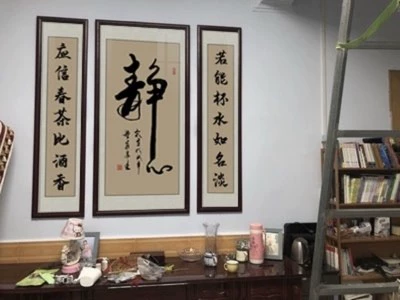 若能杯水如名淡
静心
应信春茶比酒香